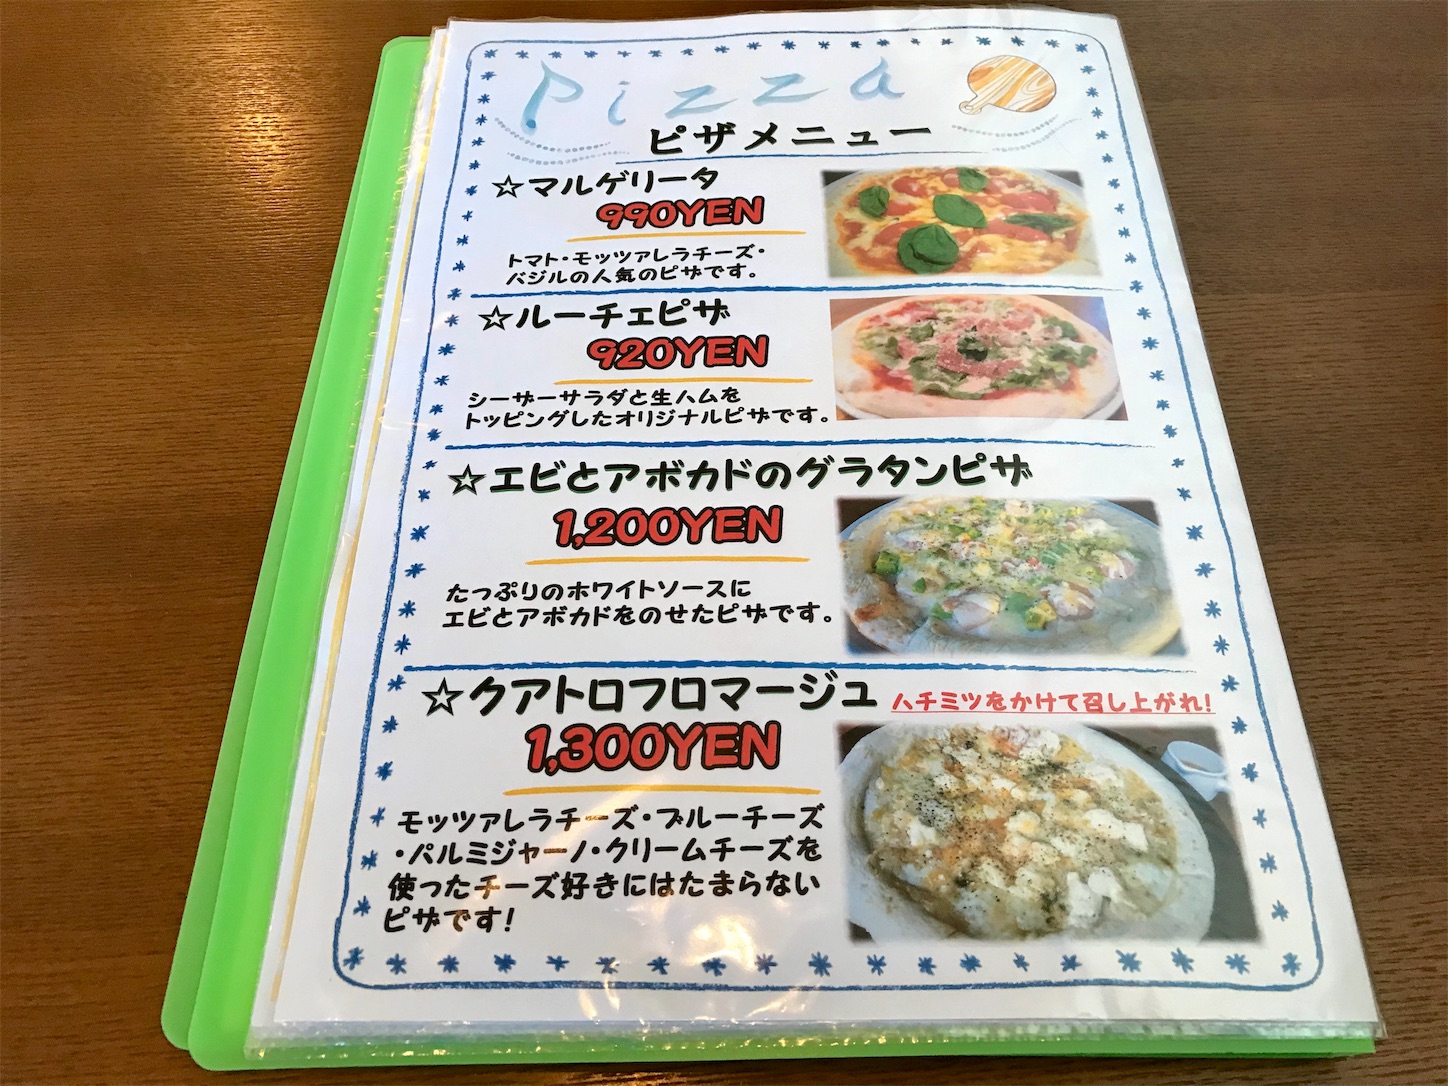 Pizza
ピザメニュー
☆マルゲリータ
990YEN
トマト・モッツァレラチーズ・
バジルの人気のピザです。
☆ルーチェピザ
920YEN
シーザーサラダと生ハムを
トッピングしたオリジナルピザです。
☆エビとアボカドのグラタンピザ
1,200YEN
たっぷりのホワイトソースに
エビとアボカドをのせたピザです。
☆クアトロフロマージュ
ハチミツをかけて召し上がれ!
1,300YEN
モッツァレラチーズ・ブルーチーズ
・パルミジャーノ・クリームチーズを
使ったチーズ好きにはたまらない
ピザです!